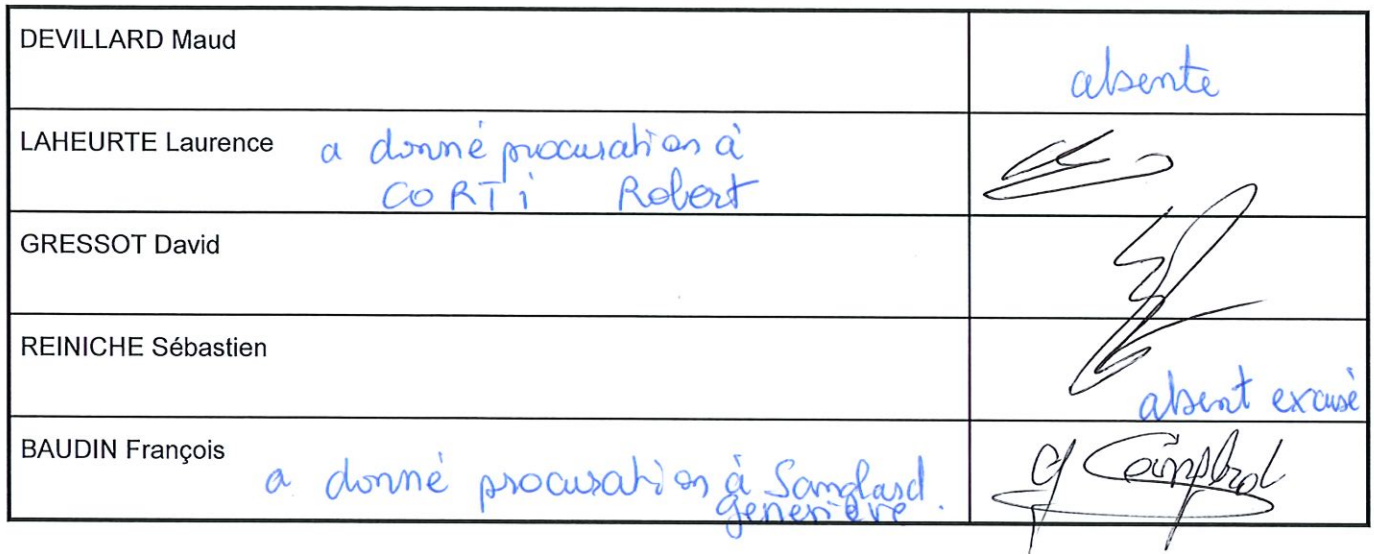 DEVILLARD Maud
absente
LAHEURTE Laurence a donné procuration à
CORTi Robert
GRESSOT David
REINICHE Sébastien
absent excusé
BAUDIN François
a donné procuration à Sanglard
Geneviève.